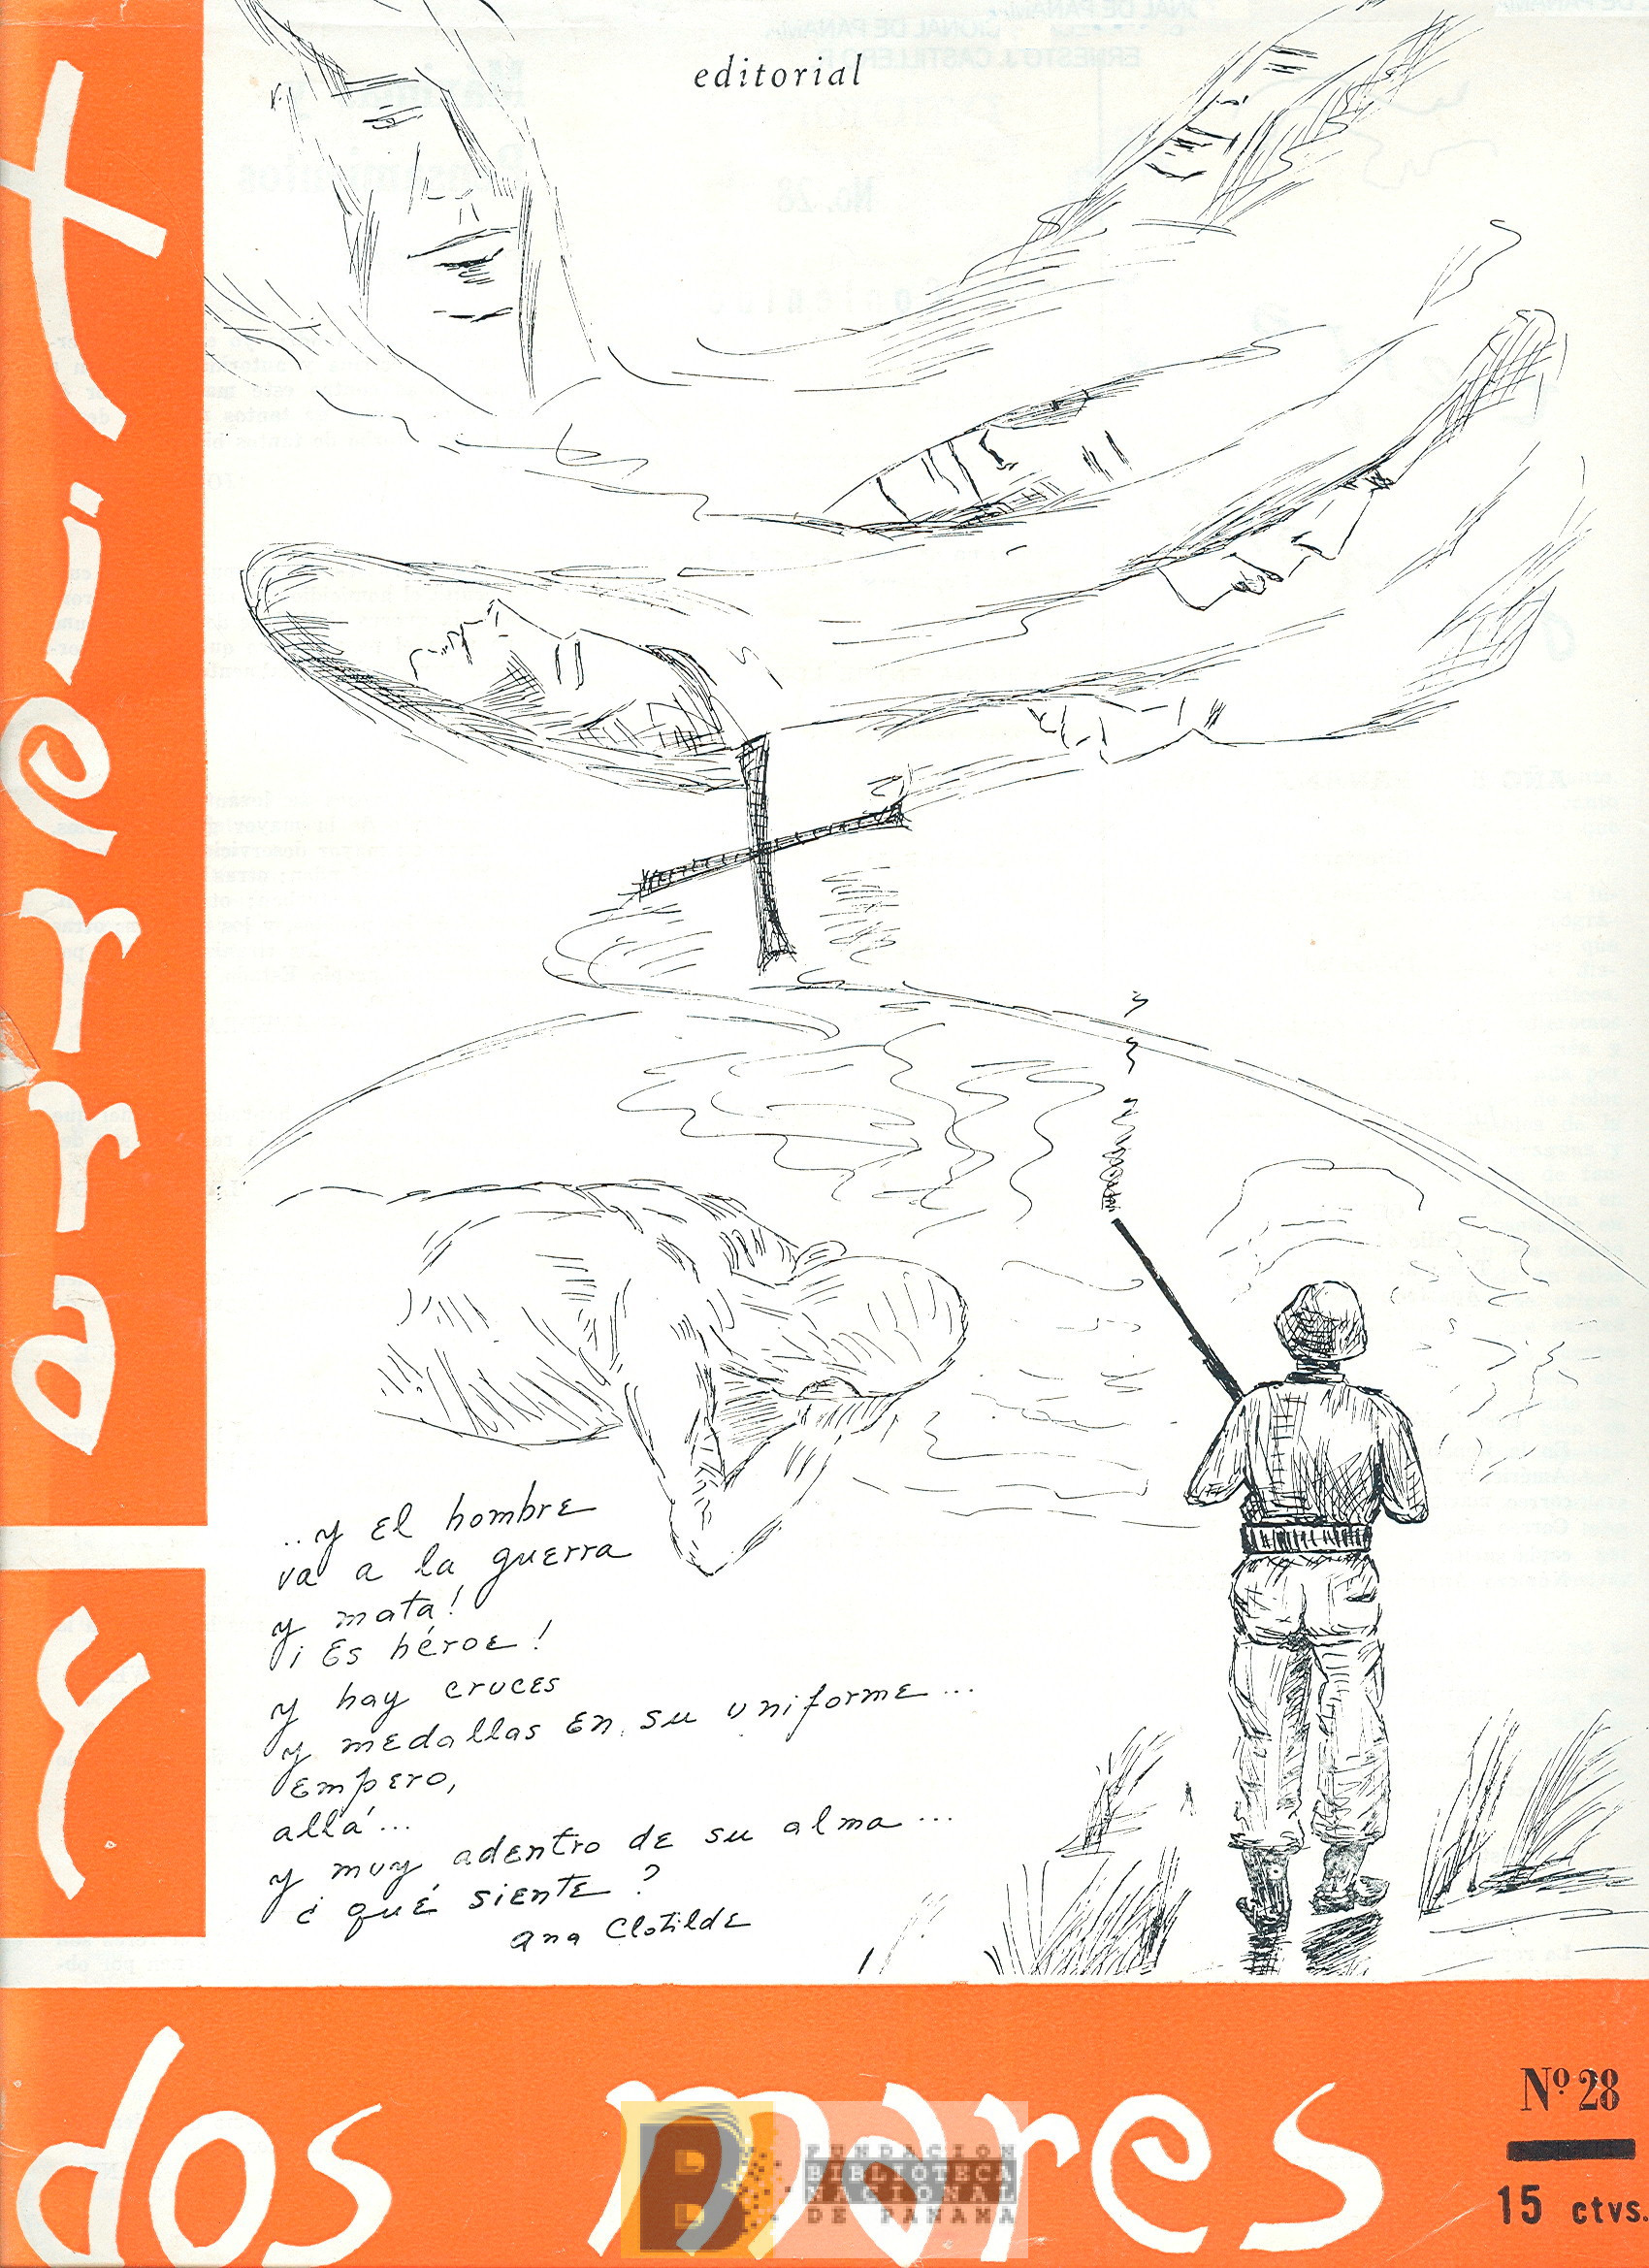 editorial
tierra
y
dos mares
...y el hombre
va a la guerra
y mata!
¡Es héroe!
y hay cruces
y medallas en su uniforme...
empero,
allá...
y muy adentro de su alma...
¿qué siente?
Ana Clotilde
Nº 28
15 ctvs.
FUNDACION
BIBLIOTECA
NACIONAL
DE PANAMA